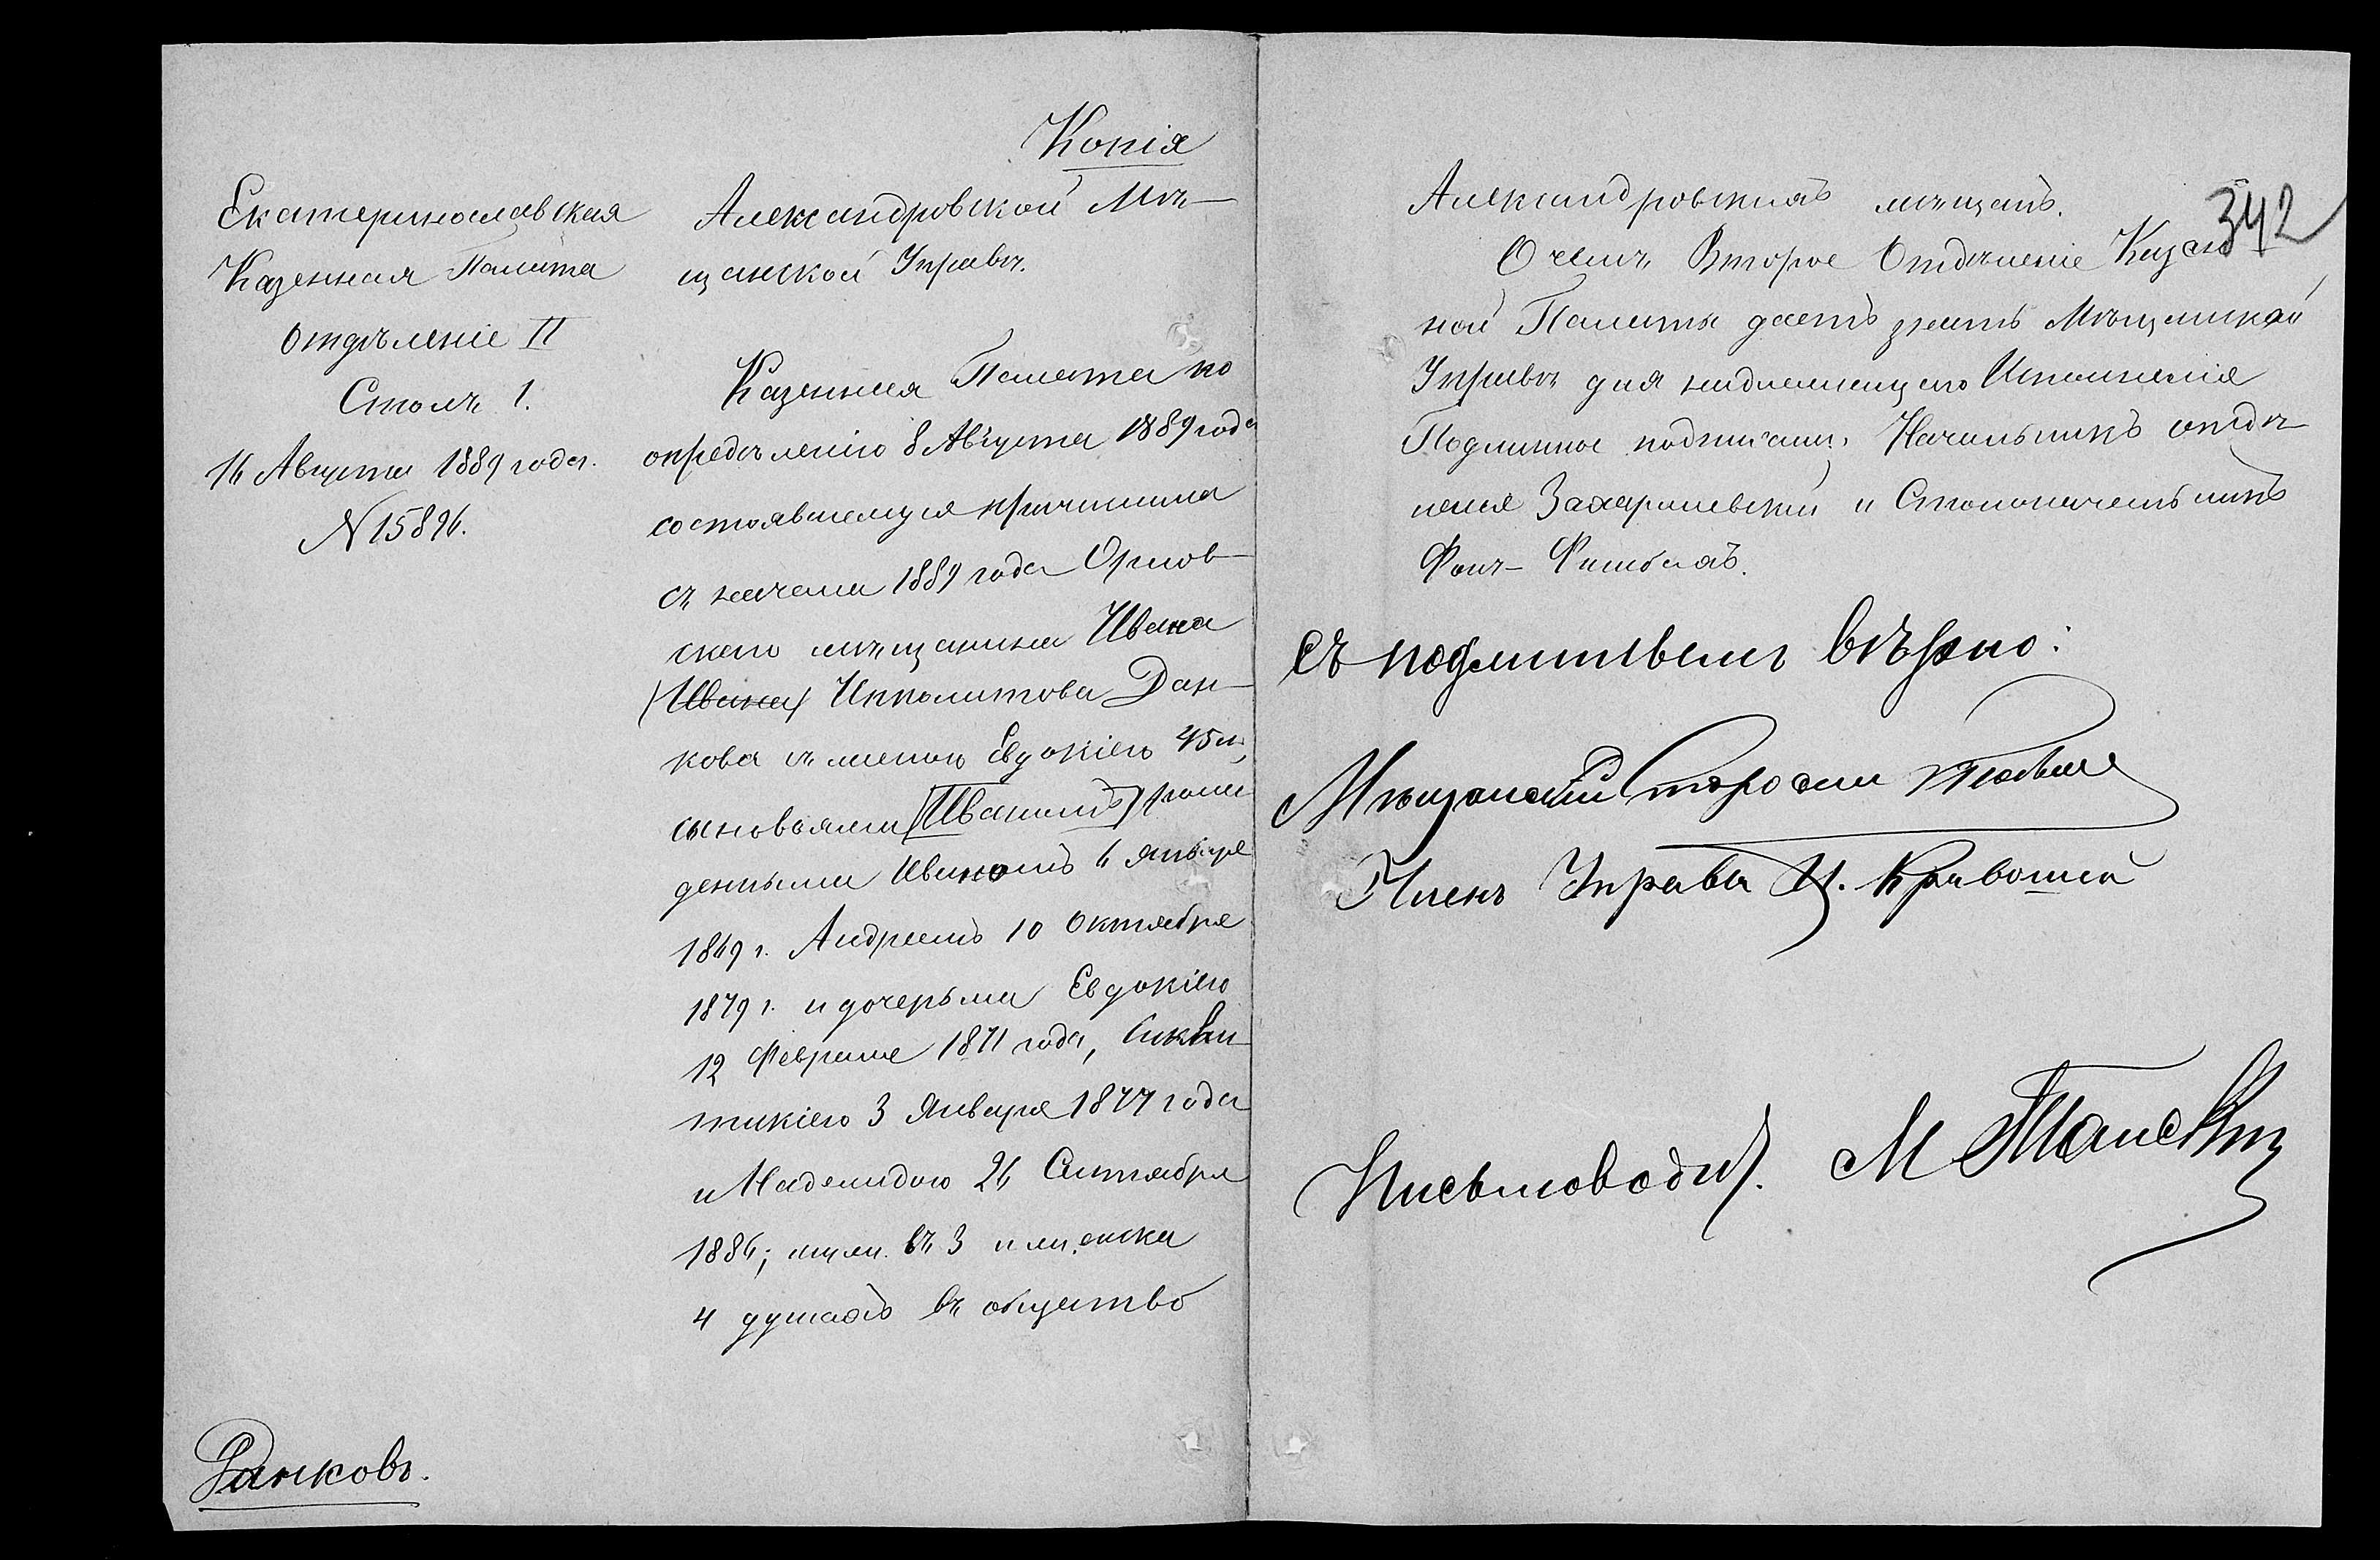 Копія
Екатеринославская
Казенная Палата
Отдѣленіе II
Столъ 1.
16 Августа 1889 года.
N 15896.
Александровской Мѣ-
щанской Управѣ.
Казенная Палата по
опредѣленію 8 Августа 1889 года
состоявшемуся причислила
съ начала 1889 года Орлов-
скаго мѣщанина Ивана
(Ивана) Ипполитова Дан-
кова съ женою Евдокіею 45 л.,
сыновьями (Иваномъ) рож-
денными Иваномъ 6 Января
1869 г. Андреемъ 10 Октября
1879 г. и дочерьми Евдокіею
12 Февраля 1871 года, Сикли-
тикіею 3 Января 1877 года
и Надеждою 26 Сентября
1886; муж. въ 3 и женска
4 душахъ въ общество
Данковъ.
342
Александровскихъ мѣщанъ.
О чемъ Второе Отдѣленіе Казен
ной Палаты даетъ знать Мѣщанской
Управѣ для надлежащаго Исполненія
Подлинное подписали: Начальникъ отдѣ-
ленія Захаржевскій и Столоначальникъ
Фонъ-
Съ подлиннымъ вѣрно:
Мѣщанскій Староста
Членъ Управы И. Кривошей
Письмовод. М